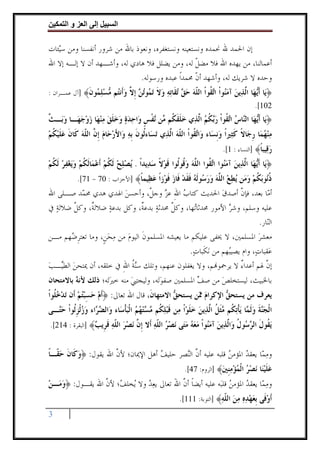 السبيل إلى العز و التمكين
إن الحمد لله نحمده ونستعينه ونستغفره، ونعوذ بالله من شرور أنفسنا ومن سيِّئات
أعمالنا، من يهده الله فلا مضلّ له، ومن يضلل فلا هادي له، وأشهد أن لا إله إلا الله
وحده لا شريك له، وأشهد أنّ محمداً عبده ورسوله.
﴿يَا أَيُّهَا الَّذِينَ آمَنُواْ اتَّقُواْ اللّهَ حَقَّ تُقَاتِهِ وَلاَ تَمُوتُنَّ إِلاَّ وَأَنتُم مُّسْلِمُونَ﴾ [آل عمران :
102].
﴿يَا أَيُّهَا النَّاسُ اتَّقُواْ رَبَّكُمُ الَّذِي خَلَقَكُم مِّن نَّفْسٍ وَاحِدَةٍ وَخَلَقَ مِنْهَا زَوْجَهَا وَبَثَّ
مِنْهُمَا رِجَالاً كَثِيراً وَنِسَاء وَاتَّقُواْ اللّهَ الَّذِي تَسَاءلُونَ بِهِ وَالأَرْحَامَ إِنَّ اللّهَ كَانَ عَلَيْكُمْ
رَقِيباً﴾ [النساء : 1].
﴿يَا أَيُّهَا الَّذِينَ آمَنُوا اتَّقُوا اللَّهَ وَقُولُوا قَوْلاً سَدِيداً . يُصْلِحْ لَكُمْ أَعْمَالَكُمْ وَيَغْفِرْ لَكُمْ
ذُنُوبَكُمْ وَمَن يُطِعْ اللَّهَ وَرَسُولَهُ فَقَدْ فَازَ فَوْزاً عَظِيماً﴾ [الأحزاب : 70 – 71].
أمّا بعد، فإنّ أصدق الحديث كتابُ الله عزّ وجلّ، وأحسن الهدي هدي محمّد صلى الله
عليه وسلم، وشرّ الأمور محدثاتُها، وكلّ محدثةٍ بدعةٌ، وكل بدعةٍ ضلالةٌ، وكلّ ضلالةٍ في
النّار.
معشرَ المسلمين، لا يخفى عليكم ما يعيشه المسلمونَ اليومَ من مِحَنٍ، وما تعترضُهم من
عَقباتٍ، وام يصيبُهم من نَكَبَاتٍ.
إنَّ لهم أعداءً لا يرحموهم، ولا يغفلون عنهم، وتلك سنَّةُ اللهِ في خلقه، أن يمتحنَ الطيِّبَ
بالخبيث، ليستخلصَ من صفِّ المسلمين صفوتَه، وليجتبيَ منه خيرتَه؛ ذلك لأنهُ بالامتحان
يعرف من يستحقُّ الإكرامَ ممَّن يستحقُّ الامتهانَ، قال الله تعالى: ﴿أَمْ حَسِبْتُمْ أَن تَدْخُلُواْ
الْجَنَّةَ وَلَمَّا يَأْتِكُم مَّثَلُ الَّذِينَ خَلَوْاْ مِن قَبْلِكُم مَّسَّتْهُمُ الْبَأْسَاء وَالضَّرَّاء وَزُلْزِلُواْ حَتَّى
يَقُولَ الرَّسُولُ وَالَّذِينَ آمَنُواْ مَعَهُ مَتَى نَصْرُ اللّهِ أَلا إِنَّ نَصْرَ اللّهِ قَرِيبٌ﴾ [البقرة : 214].
وممّا يعقدُ المؤمنُ قلبه عليه أنَّ النَّصر حليفُ أهلِ الإيمان؛ لأنّ اللهَ يقول: ﴿وَكَانَ حَقّاً
عَلَيْنَا نَصْرُ الْمُؤْمِنِينَ﴾ [الروم: 47].
وممّا يعقدُ المؤمنُ قلبَه عليه أيضاً أنَّ اللهَ تعالى يعِدُ ولا يُخلفُ؛ لأنّ الله يقول: ﴿وَمَنْ
أَوْفَى بِعَهْدِهِ مِنَ اللّهِ﴾ [التوبة: 111].
3